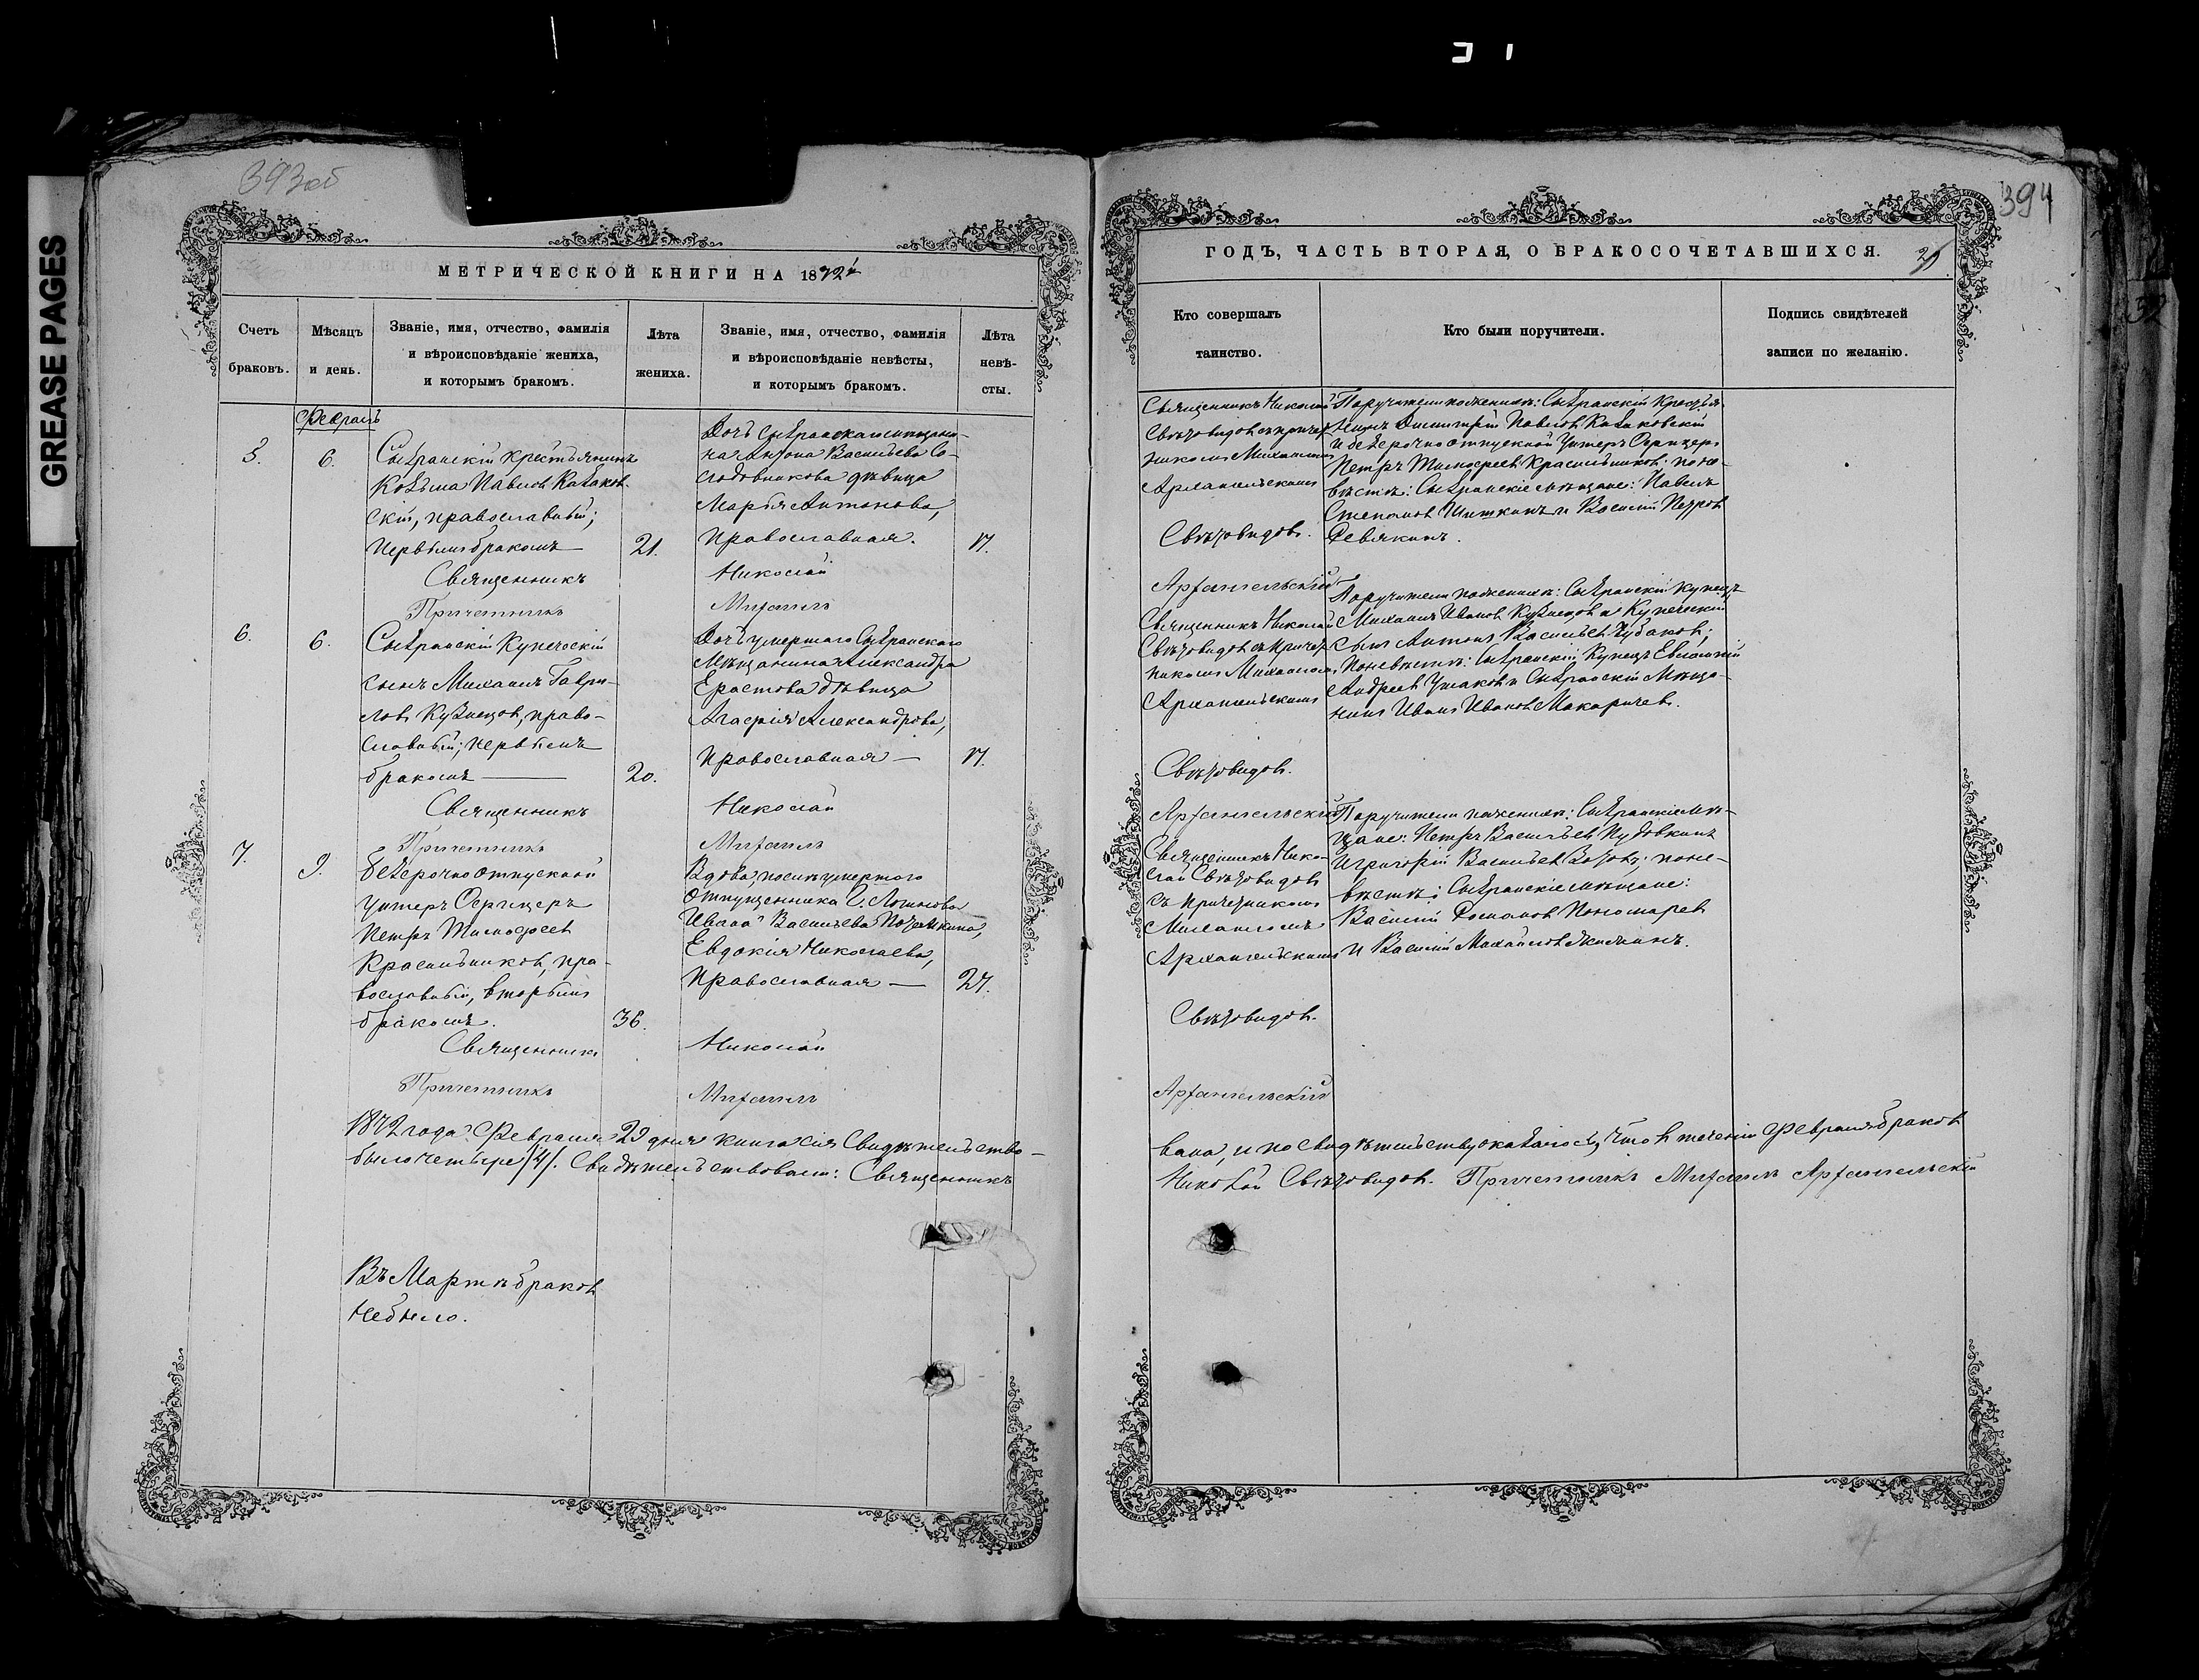 GREASE PAGES
393об
МЕТРИЧЕСКОЙ КНИГИ НА 1872й
Счетъ браковъ.
Мѣсяцъ и день.
Званіе, имя, отчество, фамилія
и вѣроисповѣданіе жениха,
и которымъ бракомъ.
Лѣта
жениха.
Званіе, имя, отчество, фамилія
и вѣроисповѣданіе невѣсты,
и которымъ бракомъ.
Лѣта
невѣ-
сты.
Февраль
6.
Сызранскій крестьянинъ
Козьма Павловъ Казаков-
скій, православный;
первымъ бракомъ
21.
Дочь Сызранскаго мѣщани-
на Антона Васильева Со-
лодовникова дѣвица
Марья Антонова,
православная.
17.
Священникъ
Николай
Причетникъ
Михаилъ
6.
6.
Сызранскій Купеческій
сынъ Михаилъ Гаври-
ловъ Кузнецовъ, право-
славный; первымъ
бракомъ
20.
Дочь умершаго Сызранскаго
Мѣщанина Александра
Ерастова дѣвица
Агафія Александрова,
православная
17.
Священникъ
Николай
Причетникъ
Михаилъ
7.
9.
безсрочно отпускной
унтеръ Офицеръ
Петръ Тимофеевъ
Красильниковъ, пра-
вославный, вторымъ
бракомъ.
36.
Вдова, послѣ умершаго
отпущенника Г.
Ивана Васильева
Евдокія Николаева,
православная
27.
Священникъ
Николай
Причетникъ
Михаилъ
1872 года Февраля 29 дня книга сія Свидѣтельство-
было четыре /4/. Свидѣтельствовали: Священникъ
Въ Мартѣ браковъ
небыло.
394
ГОДЪ, ЧАСТЬ ВТОРАЯ, О БРАКОСОЧЕТАВШИХСЯ.
Кто совершалъ
таинство.
Кто были поручители.
Подпись свидѣтелей
записи по желанію.
Священникъ Николай
Свѣтовидовъ съ причет-
никомъ Михаиломъ
Архангельскимъ
Поручители по женихѣ: Сызранскій Крестья-
нинъ Димитрій Павловъ Казаковскій
и безсрочно отпускной Унтеръ Офицеръ
Петръ Тимофеевъ Красильниковъ; по не-
вѣстѣ: Сызранскіе мѣщане: Павелъ
Степановъ и Василій Петровъ
Ревякинъ.
Свѣтовидовъ.
Архангельскій
Священникъ Николай
Свѣтовидовъ съ Причет-
никомъ Михаиломъ
Архангельскимъ
Поручители по женихѣ: Сызранскій купецъ
Михаилъ Ивановъ Кузнецовъ и Купеческій
сынъ Антонъ Васильевъ Чубаковъ;
По невѣстѣ: Сызранскій Купецъ Евлампій
Андреевъ Ушаковъ и Сызранскій Мѣща-
нинъ Иванъ Ивановъ Макаричевъ.
Свѣтовидовъ.
Архангельскій
Священникъ Нико-
лай Свѣтовидовъ
съ Причетникомъ
Михаиломъ
Архангельскимъ
Поручители по женихѣ: Сызранскіе мѣ-
щане: Петръ Васильевъ Пудовкинъ
и Григорій Васильевъ; по не-
вѣстѣ: Сызранскіе мѣщане:
Василій Романовъ Пономаревъ
и Василій Михайловъ
Свѣтовидовъ.
Архангельскій
вана, и по свидѣтельству оказалось, что въ теченіи Февраля браковъ
Николай Свѣтовидовъ. Причетникъ Михаилъ Архангельскій